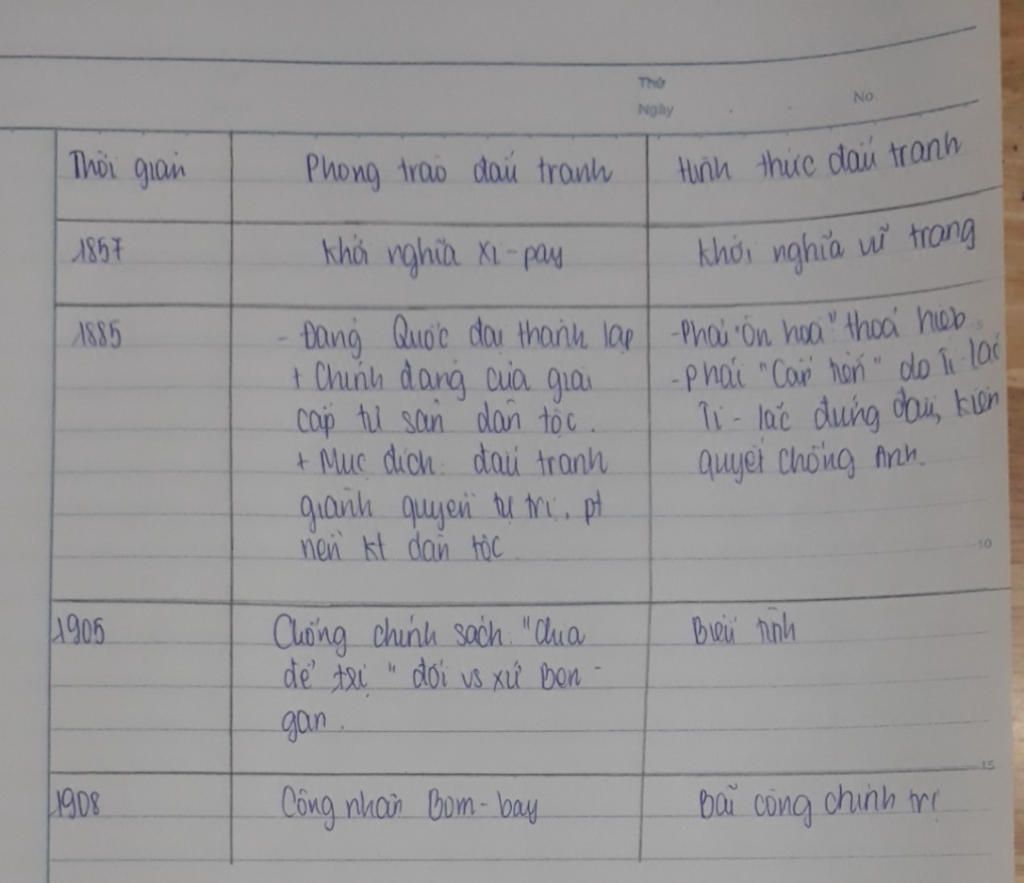 Thứ
Ngày
No
Thời gian
Phong trào đấu tranh
Hình thức đấu tranh
1857
Khởi nghĩa Xi-pay
Khởi nghĩa vũ trang
1885
- Đảng Quốc đại thành lập
+ Chính đảng của giai
cấp tư sản dân tộc.
+ Mục đích: đấu tranh
giành quyền tự trị, pt
nền kt dân tộc
-Phái "Ôn hoà" thoả hiệp.
-phái "Cấp tiến" do Ti-lắc
Ti-lắc đứng đầu, kiên
quyết chống Anh.
10
1905
Chống chính sách "Chia
để trị" đối vs xứ Ben-
gan.
Biểu tình
15
1908
Công nhân Bom-bay
Bãi công chính trị